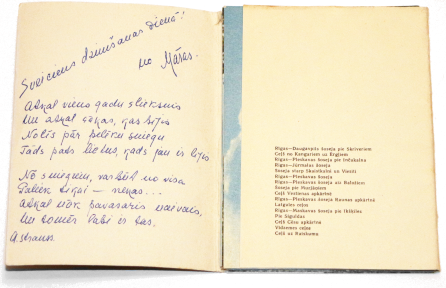 Sveiciens dzimšanas dienā!
no Māras.
Atkal viens gadu slieksnis
Un atkal sākas, kas bijis
Nolīs pār pelēku sniegu
Tāds pats lietus, kāds jau ir lijis
No sniegiem, varbūt no visa
Paliek tikai – nekas...
Atkal nāk pavasaris naivais,
Un tomēr labi ir tas.
Rīgas—Daugavpils šoseja pie Skrīveriem
Ceļš no Kangariem uz Ērgļiem
Rīgas—Pleskavas šoseja pie Inčukalna
Rīgas—Jūrmalas šoseja
Šoseja starp Skaistkalni un Viesīti
Rīgas—Pleskavas šoseja
Rīgas—Pleskavas šoseja aiz Raiņiem
Šoseja pie Murjāņiem
Ceļš Vestienas apkārtnē
Rīgas—Pleskavas šoseja Raunas apkārtnē
Latgales ceļos
Rīgas—Maskavas šoseja pie Ikšķiles
Pie Siguldas
Ceļš Cēsu apkārtnē
Vidzemes ceļos
Ceļš uz Raiskumu